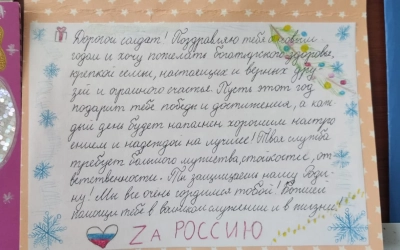 Дорогой солдат! Поздравляю тебя с новым
годом и хочу пожелать богатырского здоровья,
крепкой семьи, настоящих и верных дру-
зей и огромного счастья. Пусть этот год
подарит тебе победы и достижения, а каж-
дый день будет наполнен хорошим настро-
ением и надеждой на лучшее! Твоя служба
требует большого мужества, стойкости, от-
ветственности. Ты защищаешь нашу Роди-
ну! Мы все очень гордимся тобой! Божией
помощи тебе в великом служении и в жизни!
Zа РОССИЮ